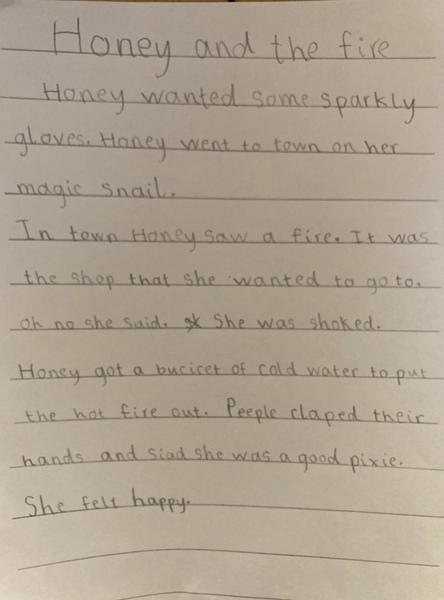 Honey and the fire
Honey wanted some sparkly
gloves. Honey went to town on her
magic snail.
In town Honey saw a fire. It was
the shop that she wanted to go to.
oh no she said. She was shoked.
Honey got a bucicet of cold water to put
the hot fire out. Peeple claped their
hands and siad she was a good pixie.
She felt happy.